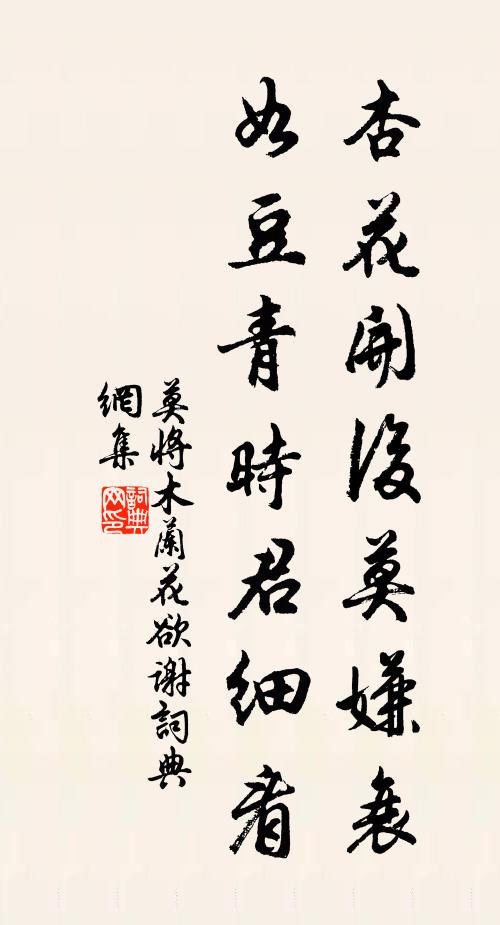 杏花開後莫嫌衰
如豆青時君細看
莫將木蘭花欲谢詞典
網集
詞典
网印